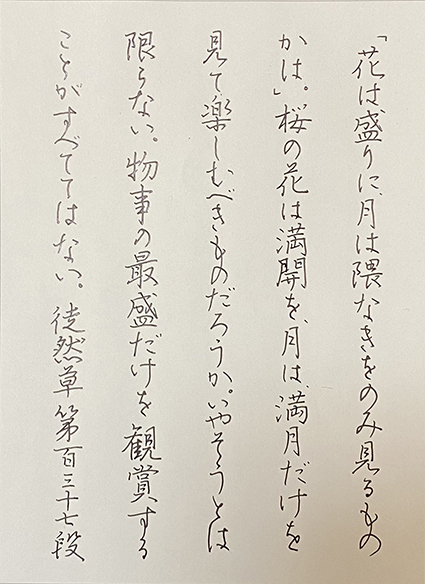 「花は盛りに、月は隈なきをのみ見るもの
かは」。桜の花は満開を、月は、満月だけを
見て楽しむべきものだろうか。いやそうとは
限らない。物事の最盛だけを観賞する
ことがすべてではない。徒然草第百三十七段